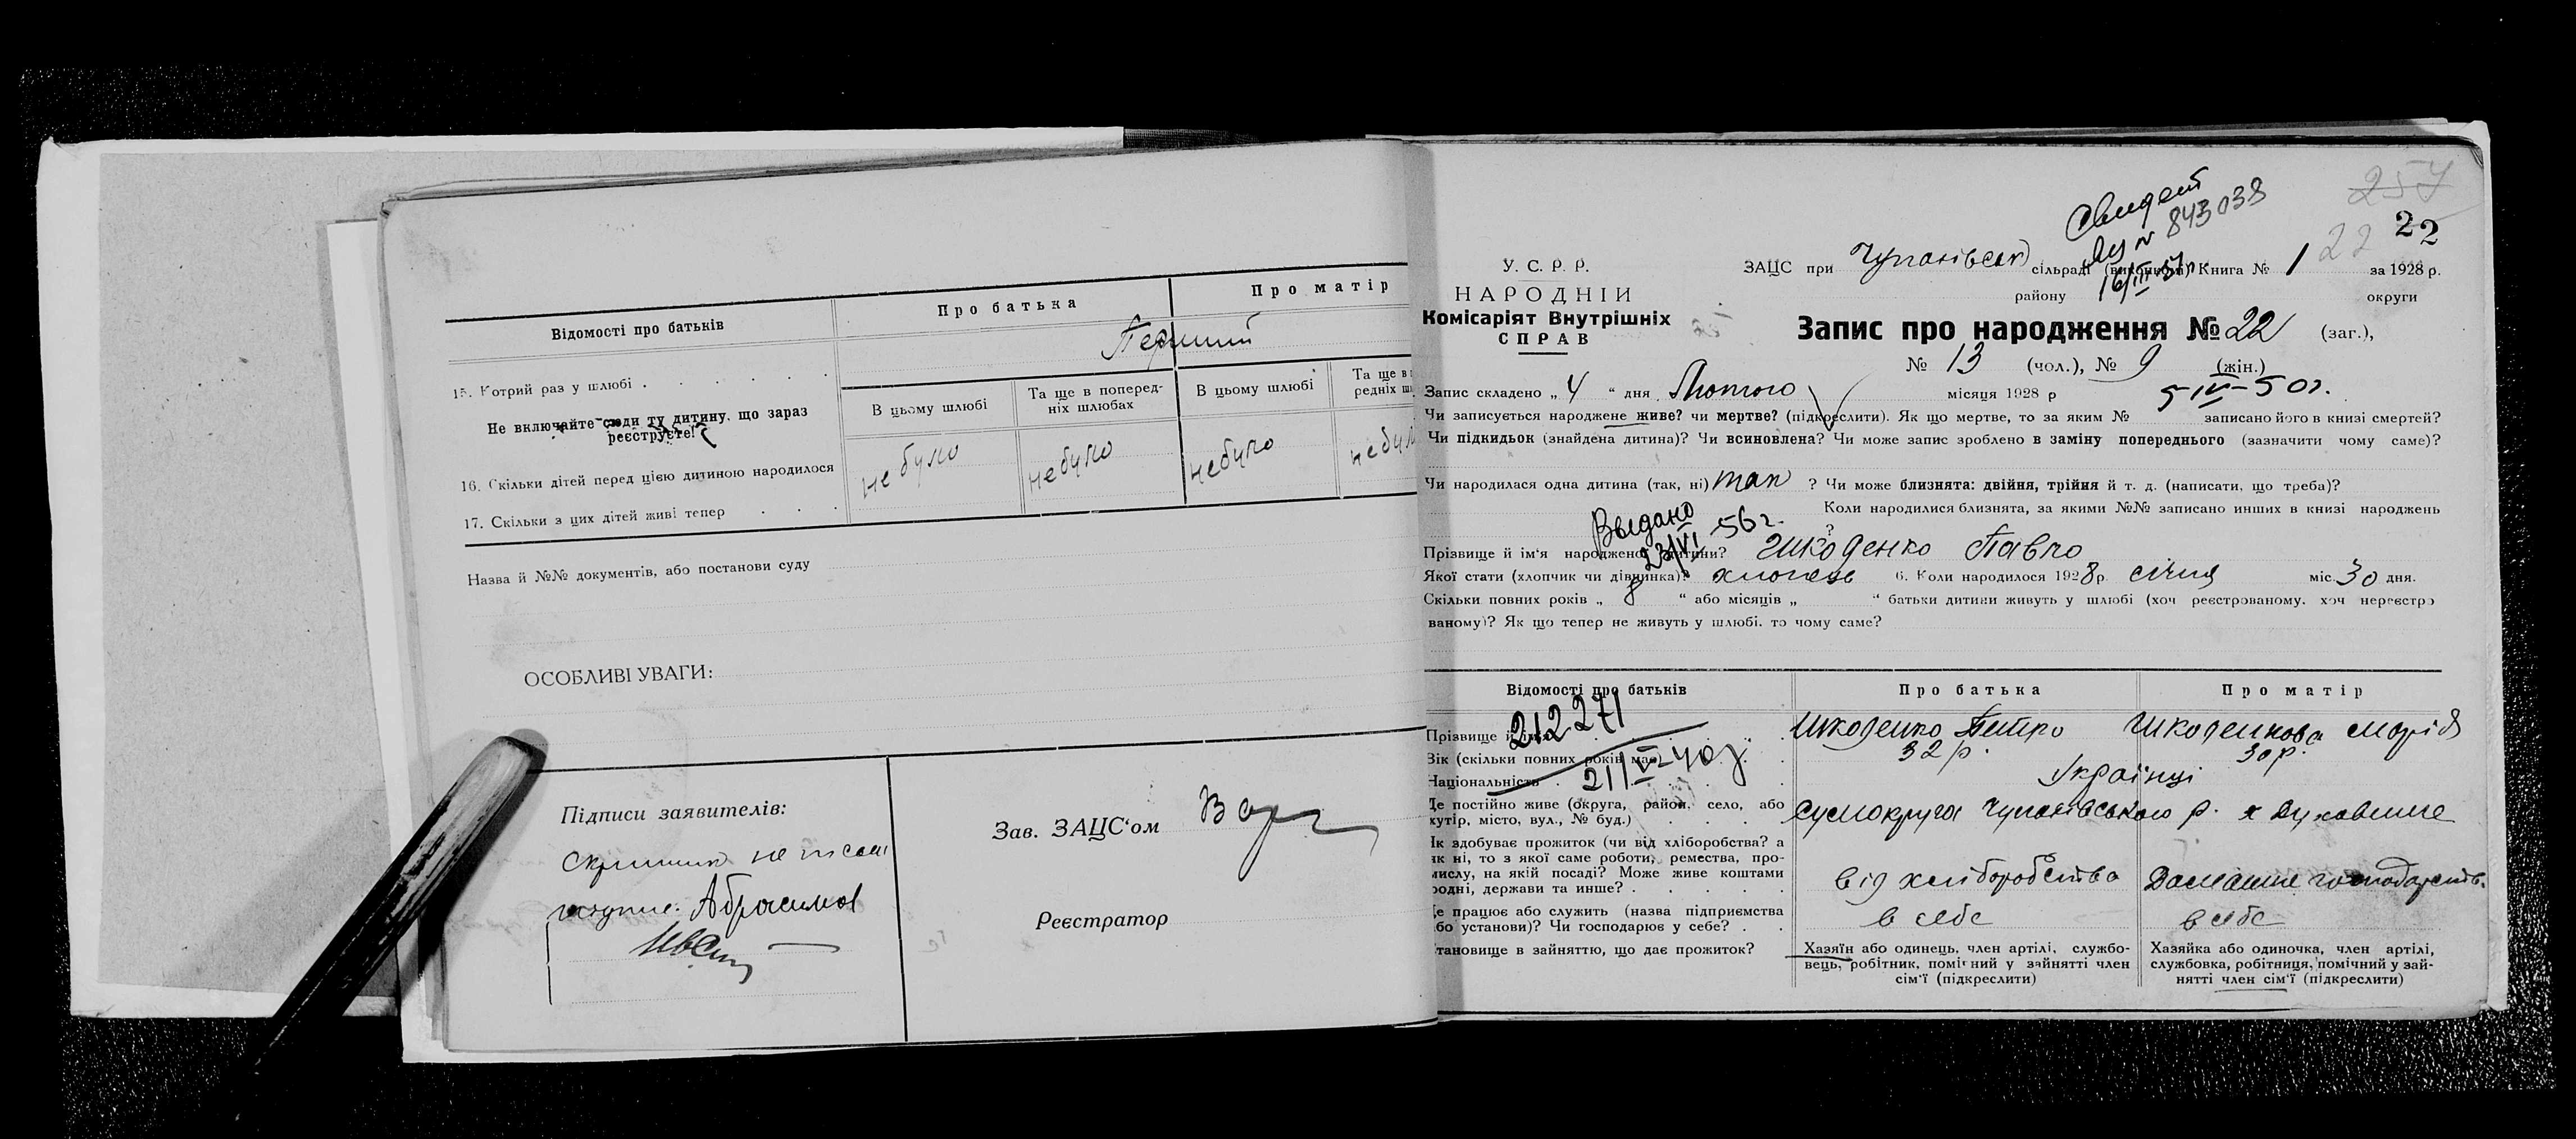 Відомості про батьків
Про батька
Про матір
15. Котрий раз у шлюбі
Перший
Не включайте сюди ту дитину, що зараз реєструєте!
В цьому шлюбі
Та ще в поперед-
ніх шлюбах
В цьому шлюбі
Та ще в
редніх
16. Скільки дітей перед цією дитиною народилося
не було
не було
не було
не було
17. Скільки з цих дітей живі тепер
Назва й №№ документів, або постанови суду
ОСОБЛИВІ УВАГИ:
Підписи заявителів:
Абрасимов
Зав. ЗАЦС'ом
Реєстратор
257
22
22
Свидет
№ 843038
У. С. Р. Р.
НАРОДНІЙ
Комісаріят Внутрішніх
СПРАВ
ЗАЦС при Чупахівськ сільраді (виконкомі) Книга № 1 за 1928 р.
району округи
Запис про народження № 22 (заг.),
№ 13 (чол.), № 9 (жін.)
Запис складено „ 4 “ дня Лютого місяця 1928 р
5-IV-50г.
Чи записується народжене живе? чи мертве? (підкреслити). Як що мертве, то за яким № записано його в книзі смертей?
Чи підкидьок (знайдена дитина)? Чи всиновлена? Чи може запис зроблено в заміну попереднього (зазначити чому саме)?
Чи народилася одна дитина (так, ні) так ? Чи може близнята: двійня, трійня й т. д. (написати, що треба)?
Коли народилися близнята, за якими №№ записано инших в книзі народжень
?
Выдано
23/VI-56г.
Прізвище й ім'я народженої дитини? Шкоденко Павло
Якої стати (хлопчик чи дівчинка)? хлопець 6. Коли народилося 1928 р. січня міс. 30 дня.
Скільки повних років „ “ або місяців „ “ батьки дитини живуть у шлюбі (хоч реєстрованому, хоч нереєстро
ваному)? Як що тепер не живуть у шлюбі, то чому саме?
Відомості про батьків
Про батька
Про матір
212271
Прізвище й ім'я
Шкоденко Петро
Шкоденкова Марія
Вік (скільки повних років має)
32 р.
30 р.
Національність
Українці
Де постійно живе (округа, район, село, або
хутір, місто, вул., № буд.)
Сумокруга Чупахівського р. х
Як здобуває прожиток (чи від хліборобства? а
як ні, то з якої саме роботи, ремества, про-
мислу, на якій посаді? Може живе коштами
родні, держави та инше?
від хліборобства
Домашнє господарств.
Де працює або служить (назва підприємства
або установи)? Чи господарює у себе?
в себе
в себе
Становище в зайняттю, що дає прожиток?
Хазяїн або одинець, член артілі, службо-
вець, робітник, помічний у зайнятті член
сім'ї (підкреслити)
Хазяйка або одиночка, член артілі,
службовка, робітниця, помічний у зай-
нятті член сім'ї (підкреслити)